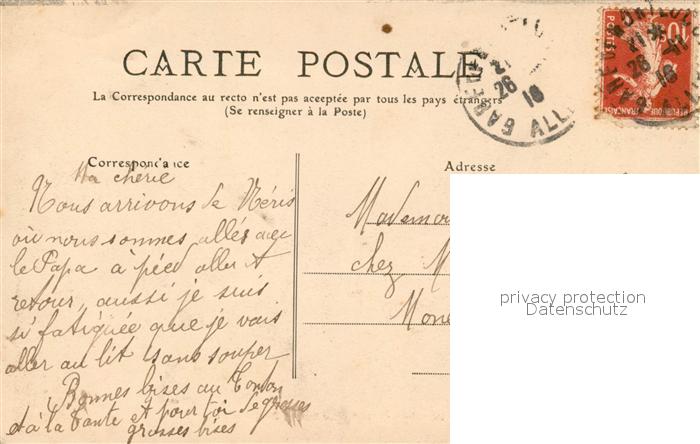 CARTE POSTALE
La Correspondance au recto n'est pas acceptée par tous les pays étrangers
(Se renseigner à la Poste)
Correspondance
Adresse
Ma chérie
Nous arrivons de Néris
où nous sommes allés avec
le Papa à pied aller et
retour, aussi je suis
si fatiguée que je vais
aller au lit sans souper
Bonnes bises au Tonton
et à la Tante et pour toi de grosses
grosses bises
Mademoi
chez M
Mone
privacy protection
Datenschutz
GARE DE
21
26 10
ALL
10
POSTES
REPUBLIQUE FRANÇAISE
21
26 10